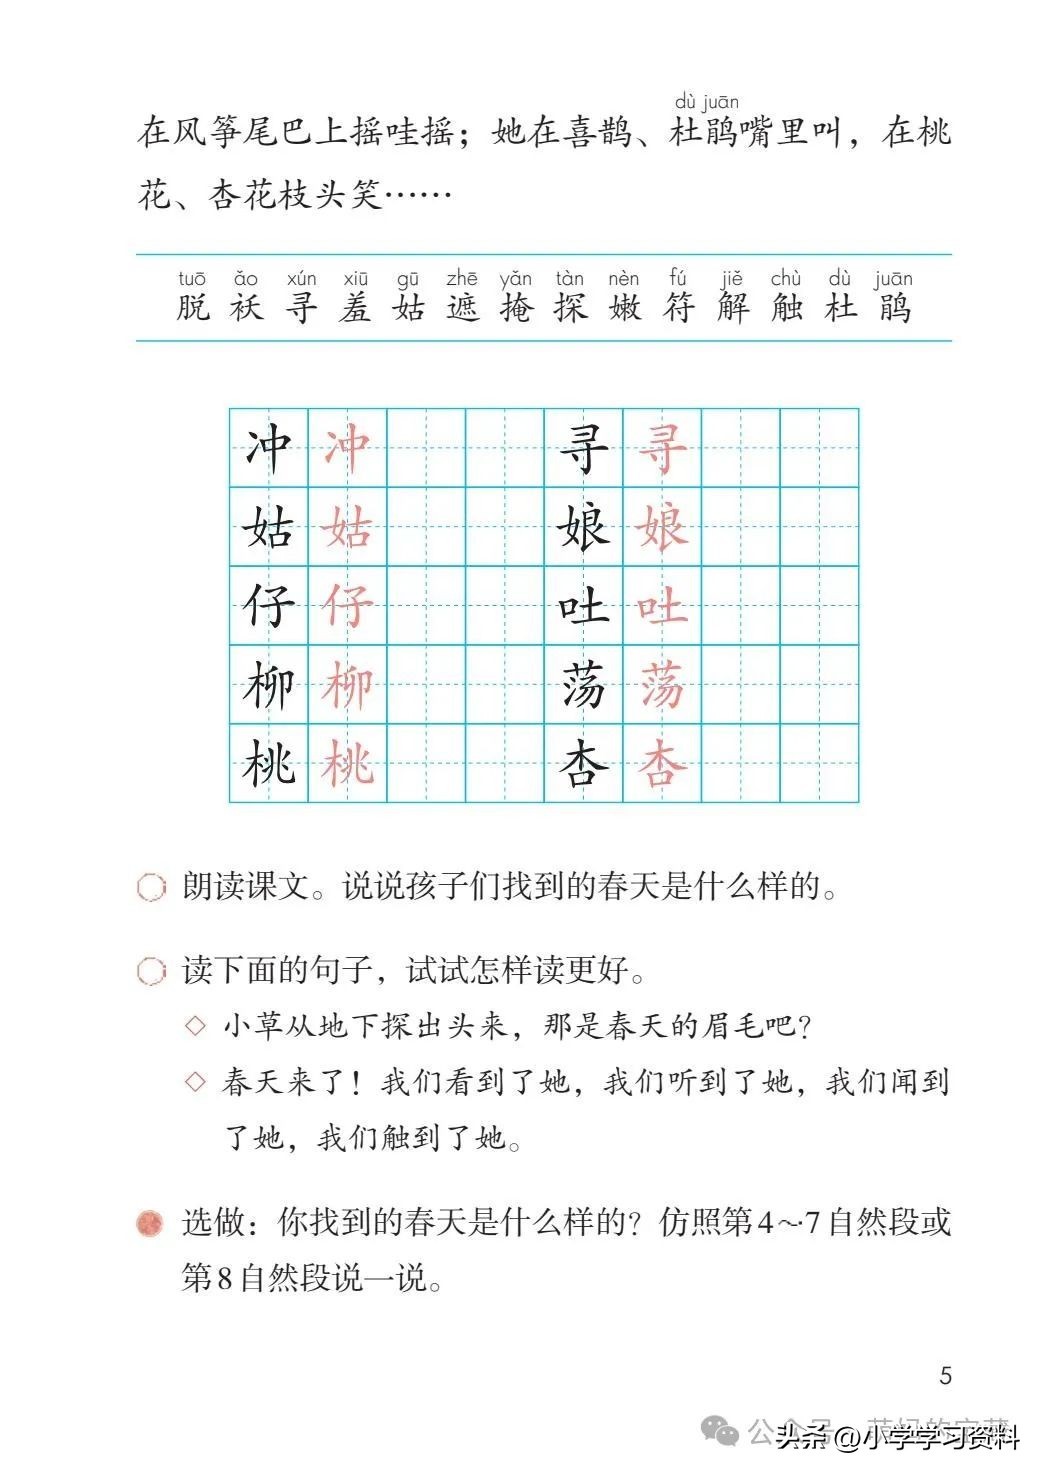 dù juān
在风筝尾巴上摇哇摇；她在喜鹊、杜鹃嘴里叫，在桃
花、杏花枝头笑……
tuō ǎo xún xiū gū zhē yǎn tàn nèn fú jiě chù dù juān
脱 袄 寻 羞 姑 遮 掩 探 嫩 符 解 触 杜 鹃
冲 冲 寻 寻
姑 姑 娘 娘
仔 仔 吐 吐
柳 柳 荡 荡
桃 桃 杏 杏
朗读课文。说说孩子们找到的春天是什么样的。
读下面的句子，试试怎样读更好。
◇ 小草从地下探出头来，那是春天的眉毛吧？
◇ 春天来了！我们看到了她，我们听到了她，我们闻到
了她，我们触到了她。
选做：你找到的春天是什么样的？仿照第4～7自然段或
第8自然段说一说。
5
公众号
头条@小学学习资料